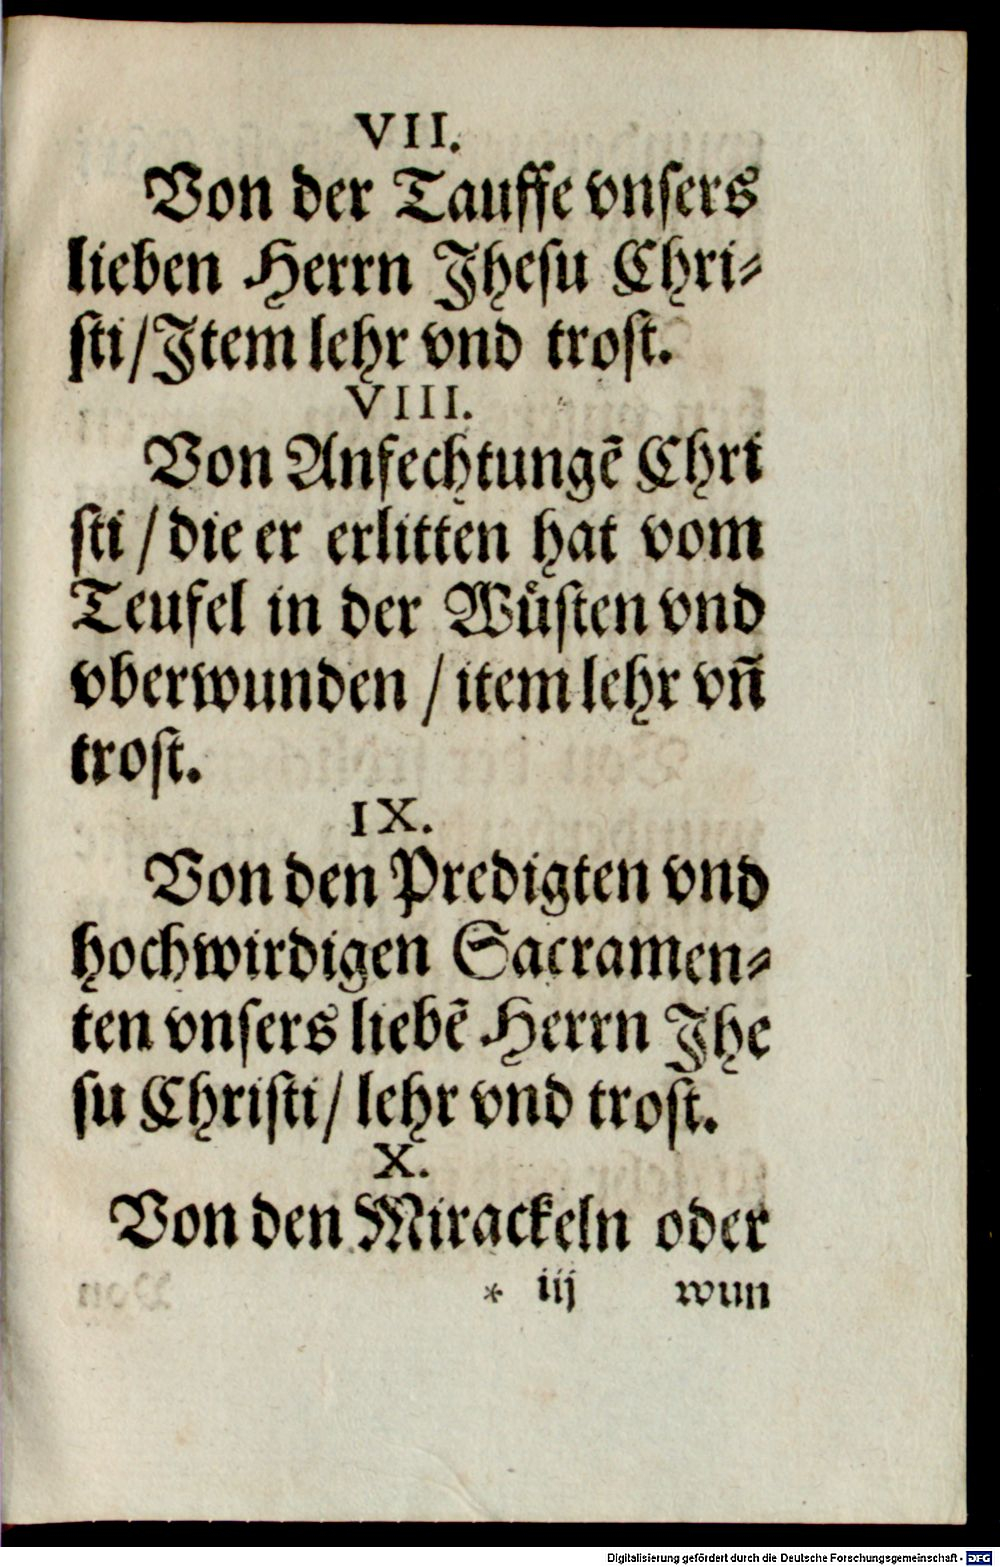 VII.
Von der Tauffe vnſers
lieben Herrn Jheſu Chri⸗
ſti/Jtem lehr vnd troſt.
VIII.
Von Anfechtungē Chri
ſti / die er erlitten hat vom
Teufel in der Wuͤſten vnd
vberwunden / item lehr vn̄
troſt.
IX.
Von den Predigten vnd
hochwirdigen Sacramen⸗
ten vnſers liebē Herrn Jhe
ſu Chriſti/ lehr vnd troſt.
X.
Von den Mirackeln oder
* iij wun
Digitalisierung gefördert durch die Deutsche Forschungsgemeinschaft - DFG